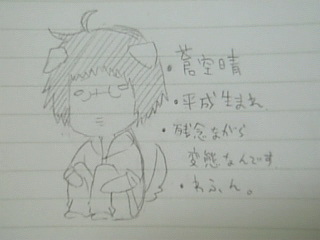 ・蒼空晴
・平成生まれ
・残念ながら
変態なんです
・わふん。